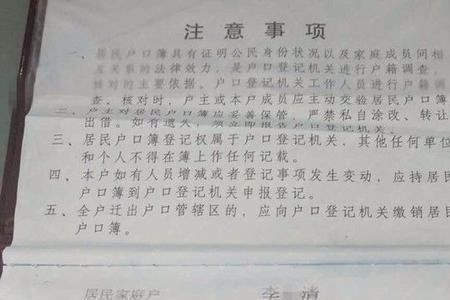 注意事项
、居民户口簿具有证明公民身份状况以及家庭成员间相
互关系的法律效力，是户口登记机关进行户籍调查、
核对的主要依据。户口登记机关工作人员进行户籍调
查、核对时，户主或本户成员应主动交验居民户口簿
二、户主对居民户口簿应妥善保管，严禁私自涂改、转让
出借。如有遗失，须立即报告户口登记机关。
三、居民户口簿登记权属于户口登记机关，其他任何单位
和个人不得在簿上作任何记载。
四、本户如有人员增减或者登记事项发生变动，应持居民
户口簿到户口登记机关申报登记。
五、全户迁出户口管辖区的，应向户口登记机关缴销居民
户口簿。
居民家庭户
李 清